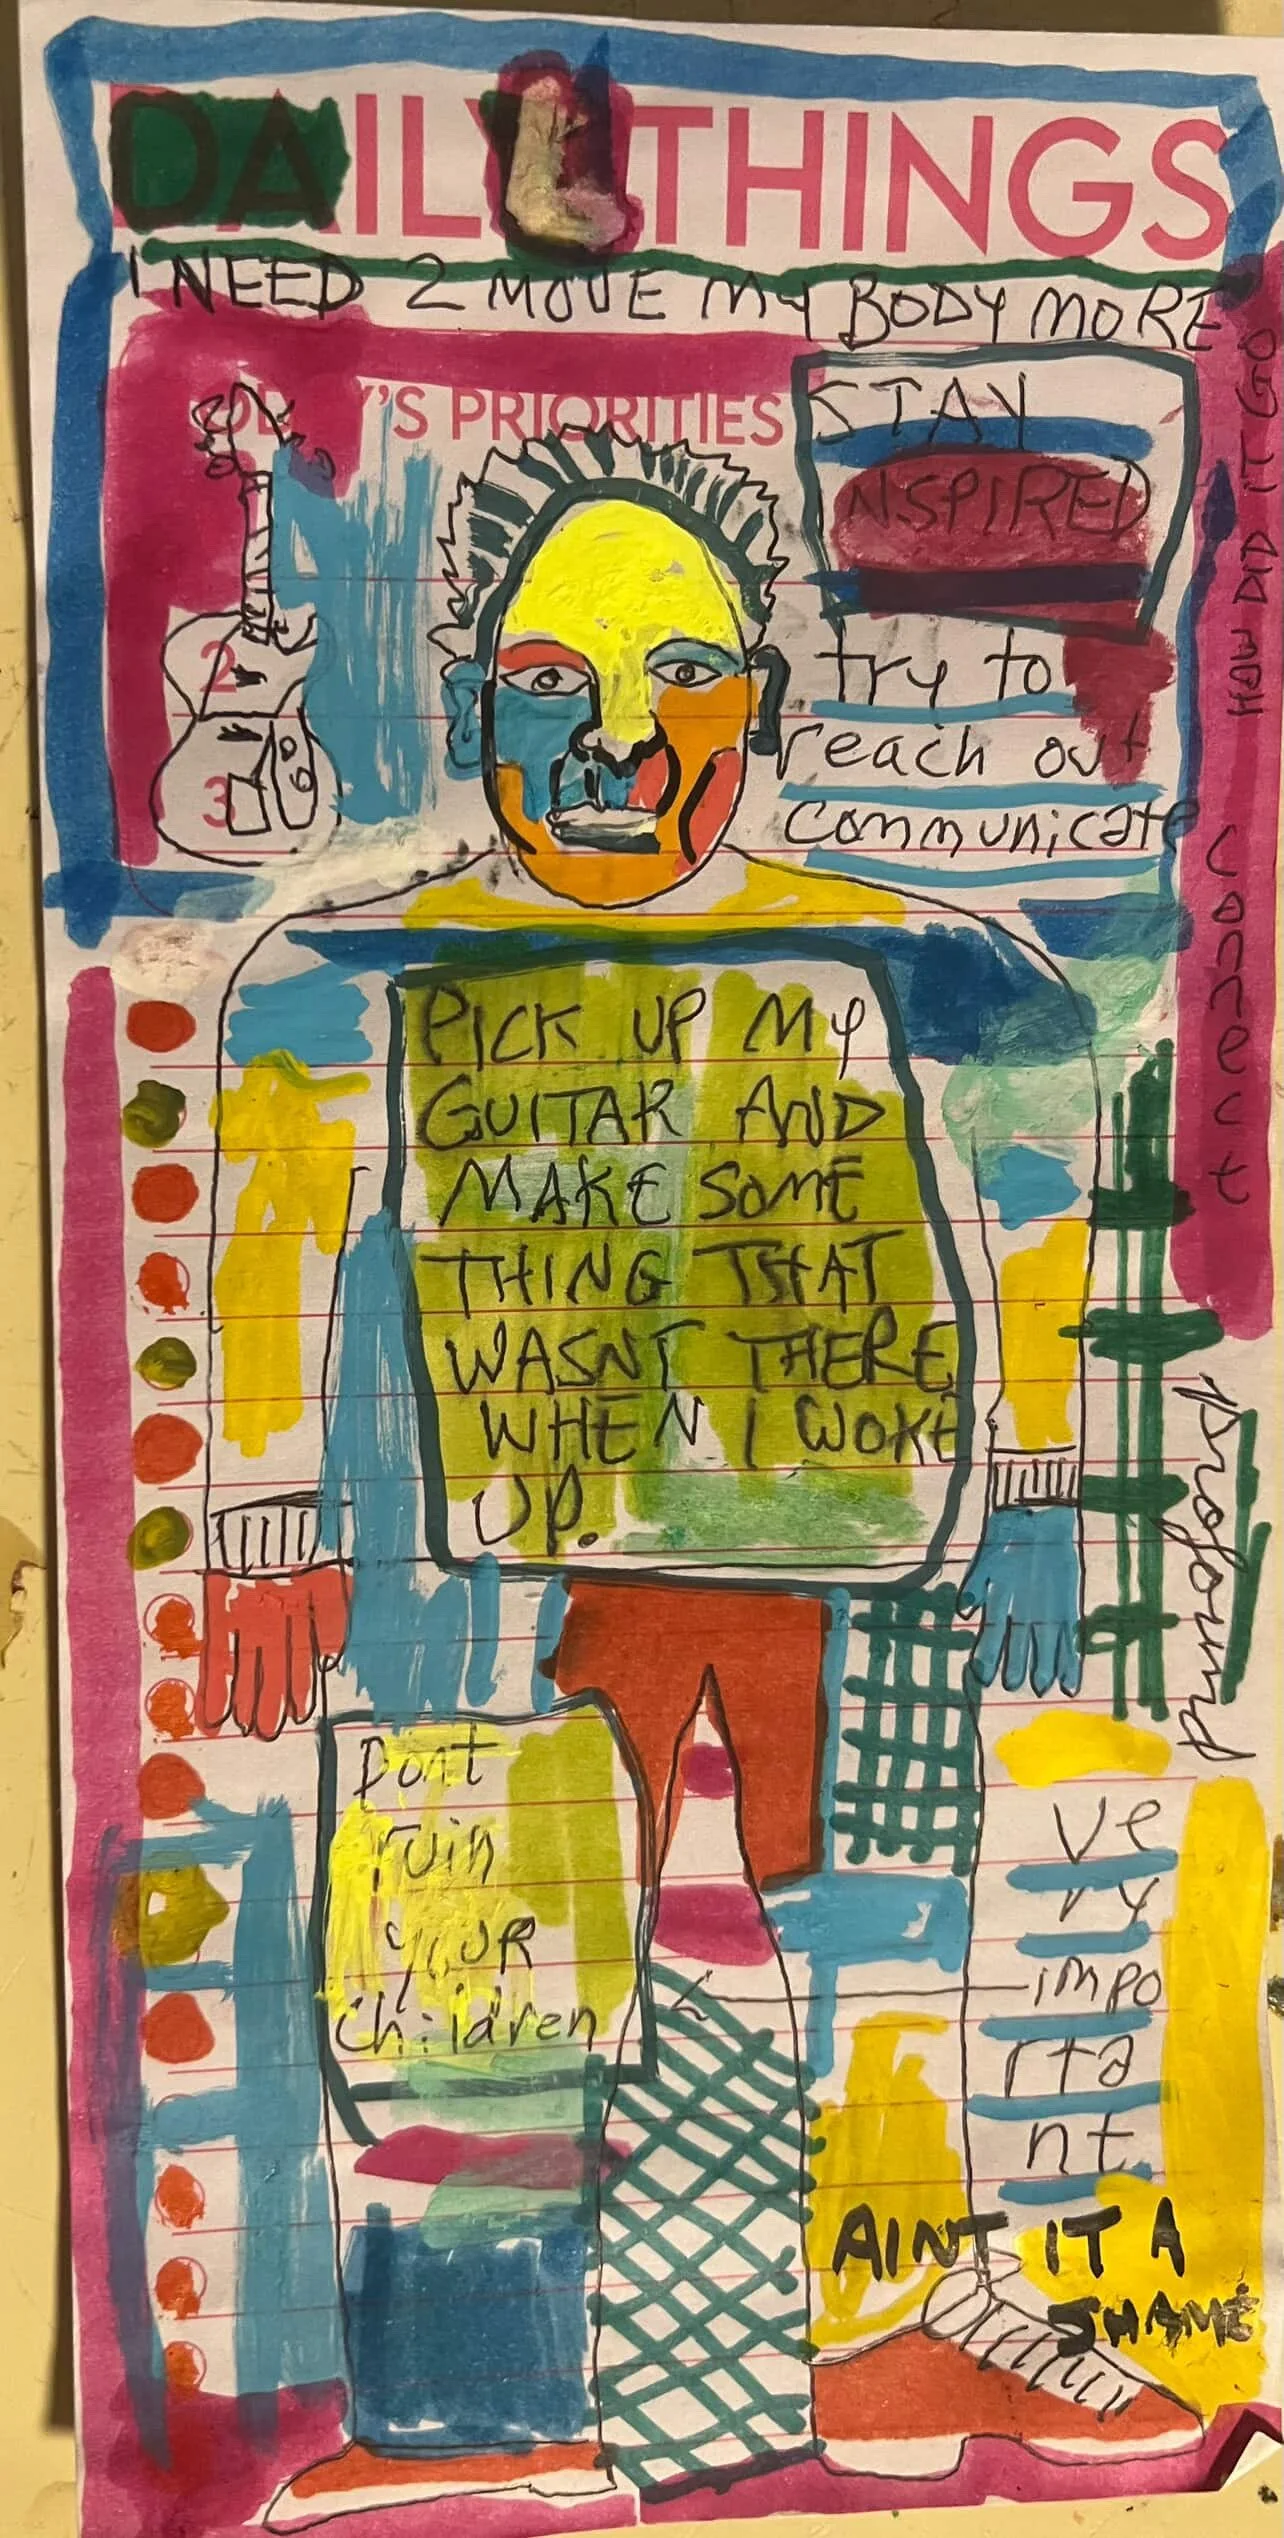 DAILY THINGS
I NEED 2 MOVE MY BODY MORE
TODAY'S PRIORITIES
2
3
STAY
INSPIRED
try to
reach out
communicate
HOW DID IT GO
Connect
PICK UP MY
GUITAR AND
MAKE SOME
THING THAT
WASNT THERE
WHEN I WOKE
UP.
profound
Dont
ruin
YOUR
children
ve
ry
impo
rta
nt
AINT IT A
SHAME